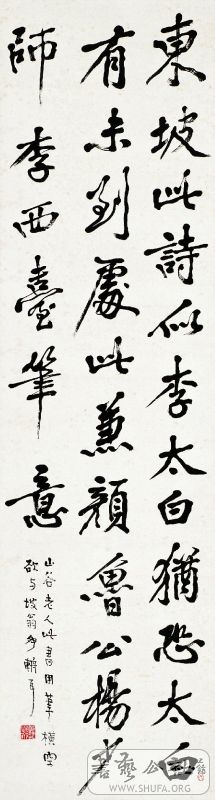 東坡此詩似李太白猶恐太白
有未到處此兼顏魯公楊少
師李西臺筆意
山谷老人此書用筆橫空
欲与坡翁
書藝公社
WWW.SHUFA.ORG